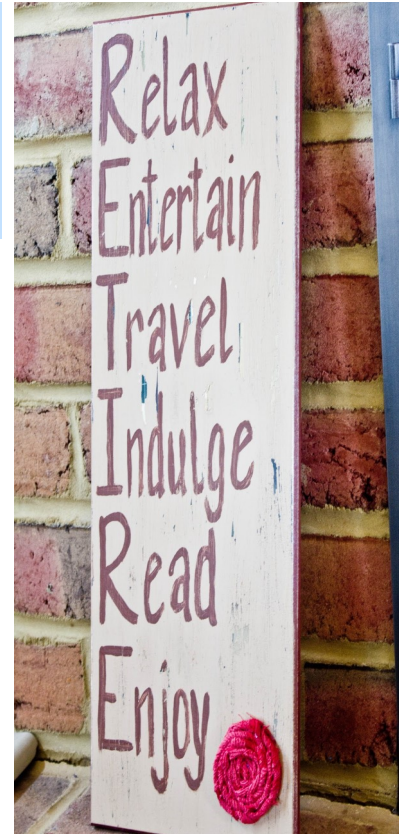 Relax
Entertain
Travel
Indulge
Read
Enjoy